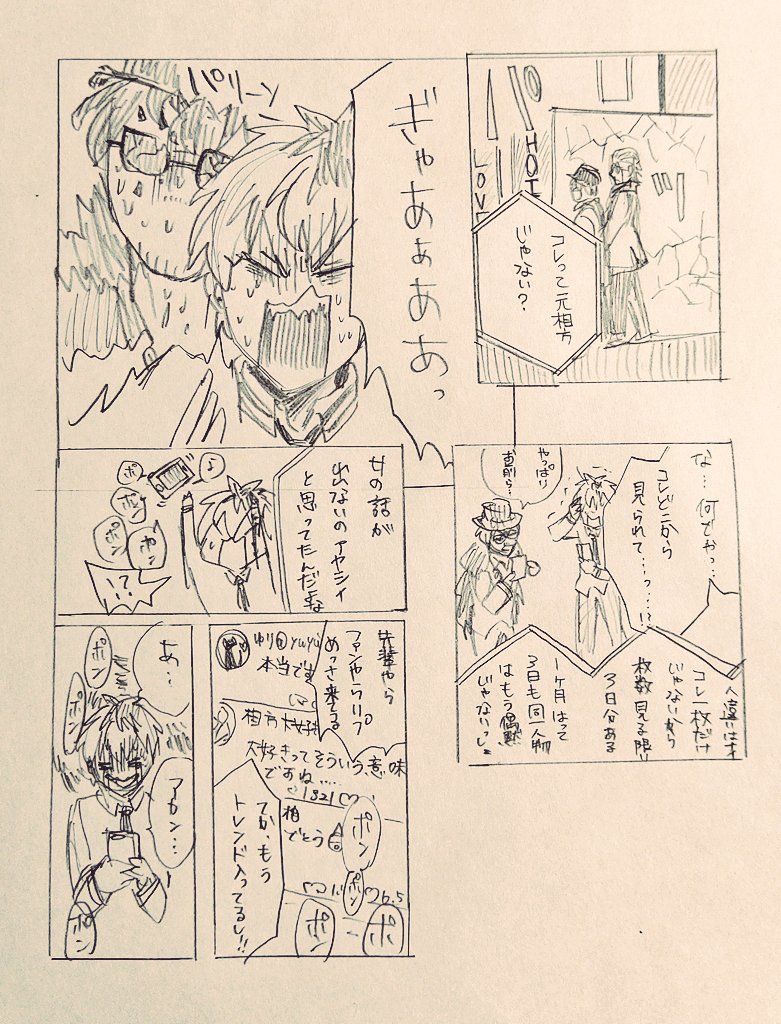 HOT
LOVE
コレって元相方
じゃない?
パリーン
ぎゃあぁあああっ
な…何でやっ…
コレどこから
見られて…っ…!?
やっぱり
お前ら…
人違いはオ
コレ一枚だけ
じゃないから
枚数見る限り
3日分ある
1ヶ月はって
3日も同一人物
はもう偶然
じゃないっしょ
女の話が
出ないのアヤシイ
と思ってたんだよな
♪
ポン
ポン
ポン
いて!
先輩やら
ファンやらリプ
めっさ来てる
ゆり@yuyu
本当です
相方大好き
大好きってそういう意味
ですね…
♡1321♡
相
でとう
ポン
ポン
ポン
ポ
♡6.5
てか、もう
トレンド入ってるし!!
あ…
ポン
ポン
アカン…
ポン